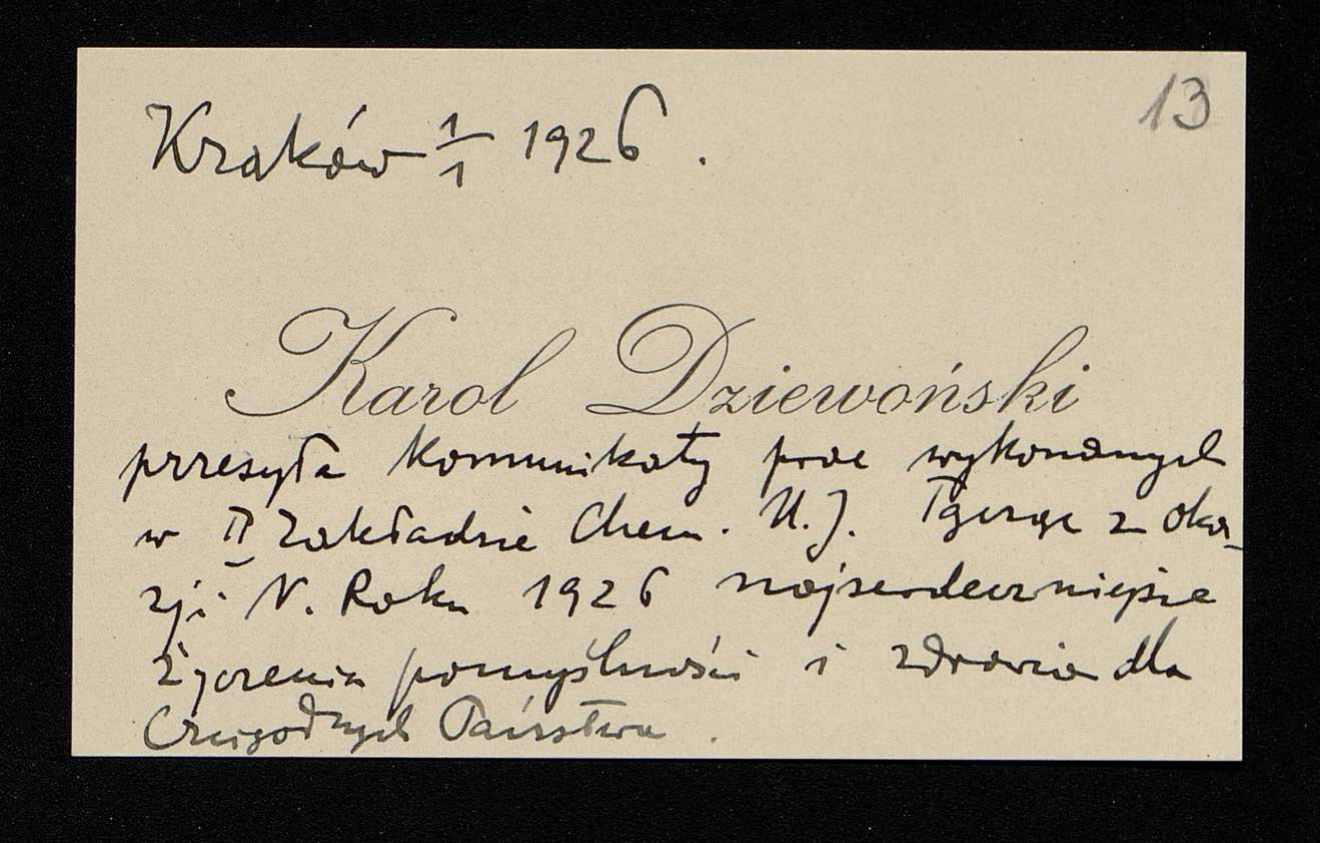 13
Kraków 1/1 1926.
Karol Dziewoński
przesyła komunikaty prac wykonanych
w II Zakładzie Chem. U.J. Łącząc z oka-
zji N. Roku 1926 najserdeczniejsze
życzenia pomyślności i zdrowia dla
Czcigodnych Państwa.